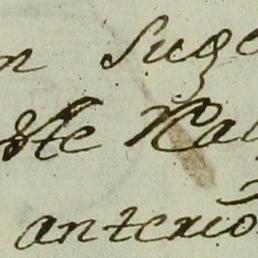 n Suge
ste Na
anterio